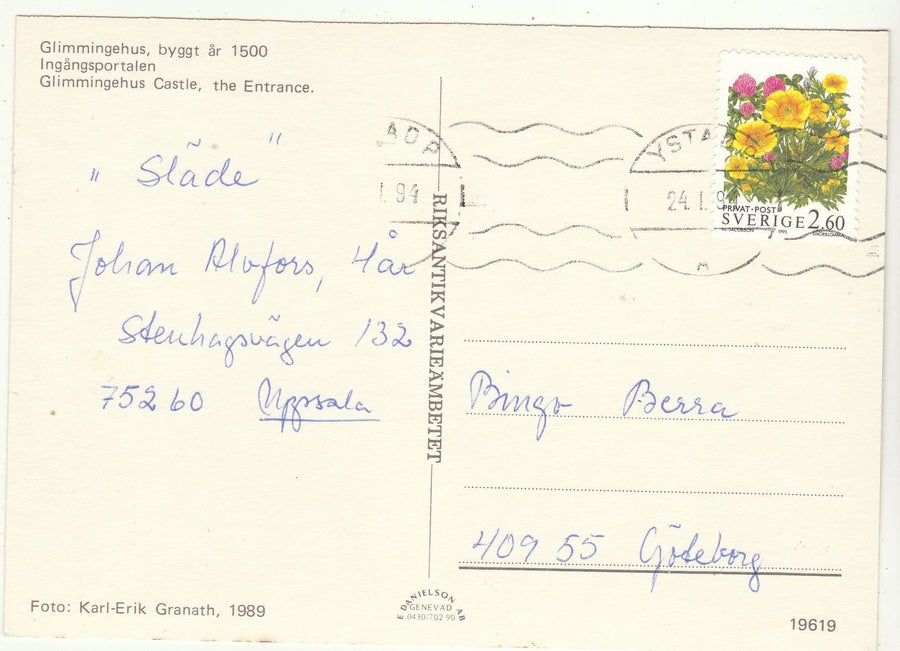 Glimmingehus, byggt år 1500
Ingångsportalen
Glimmingehus Castle, the Entrance.
" Släde "
Johan Alvfors, 4år
Stenhagsvägen 132
752 60 Uppsala
Foto: Karl-Erik Granath, 1989
RIKSANTIKVARIEÄMBETET
E DANIELSON AB
GENEVAD
0430/702 90
AOP
1.94
YSTA
24.1.9
A
PRIVAT·POST
SVERIGE 2.60
M. JACOBSON 1995
Bingo Berra
409 55 Göteborg
19619